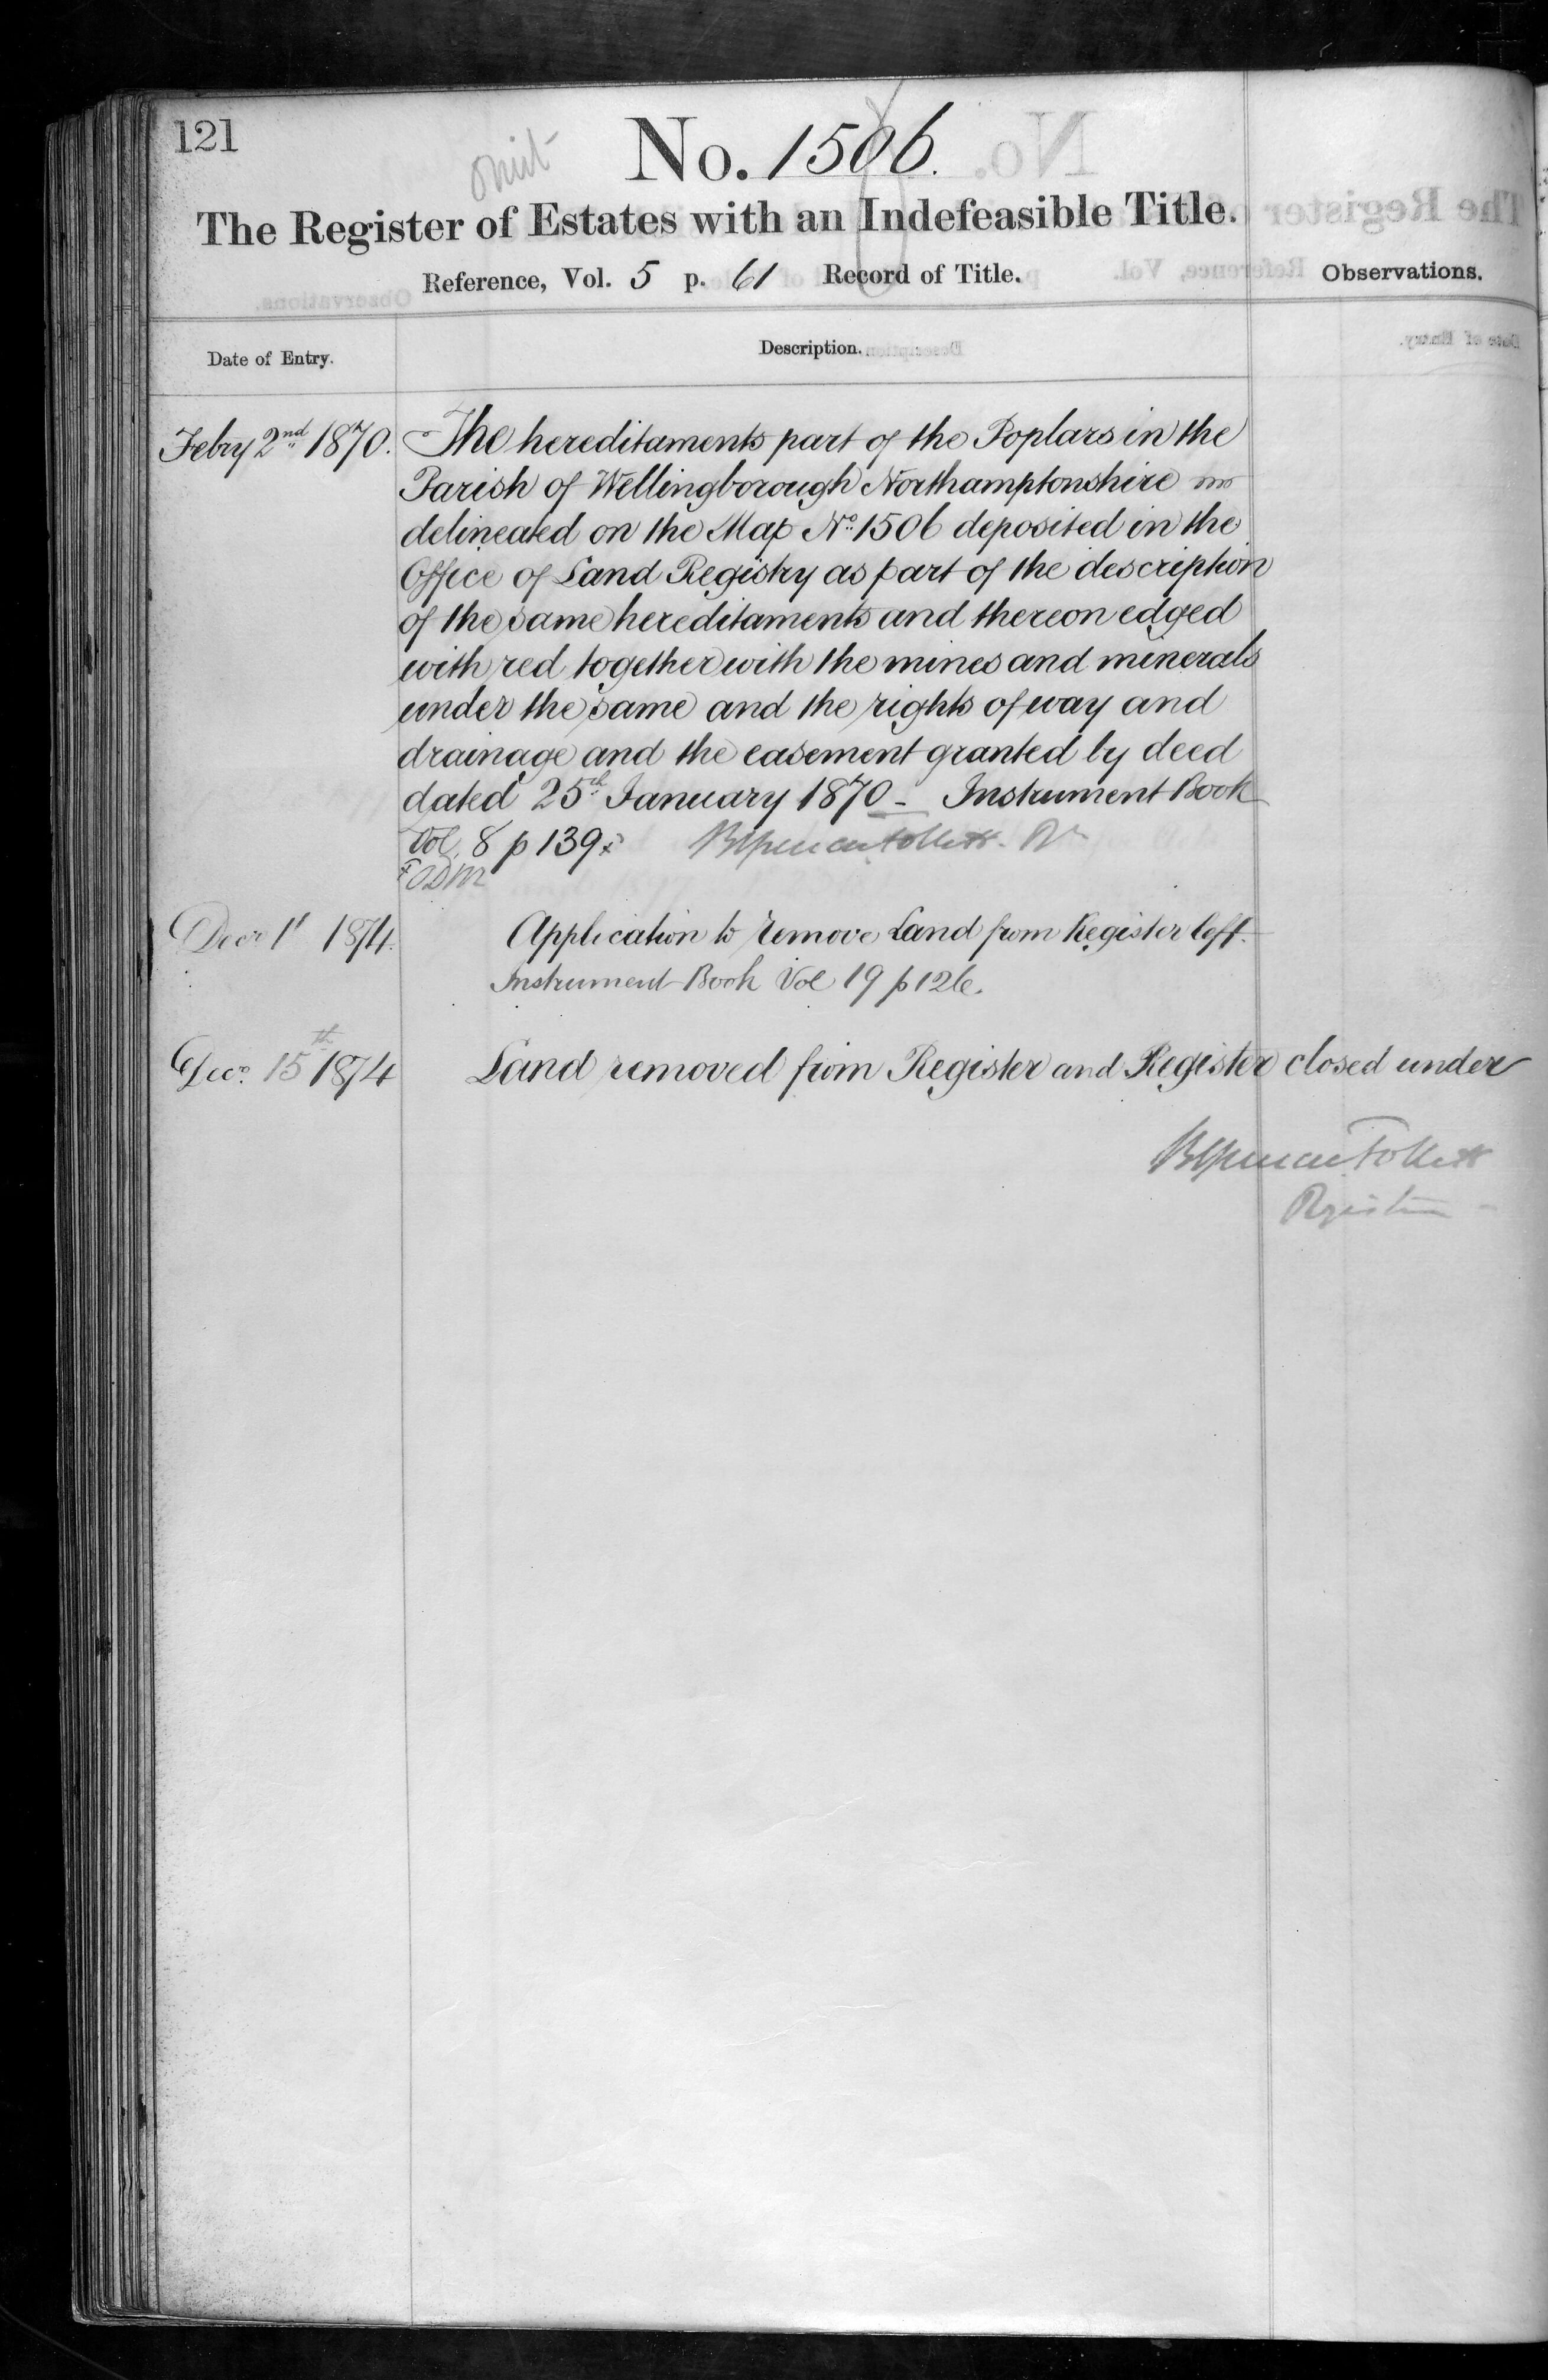 121
omit
No. 1506.
The Register of Estates with an Indefeasible Title.
Reference, Vol. 5 p. 61 Record of Title.
Observations.
Date of Entry.
Description.
Febry 2nd 1870. The hereditaments part of the Poplars in the
Parish of Wellingborough Northamptonshire
delineated on the Map No. 1506 deposited in the
Office of Land Registry as part of the description
of the same hereditaments and thereon edged
with red together with the mines and minerals
under the same and the rights of way and
drainage and the easement granted by deed
dated 25th January 1870 - Instrument Book
Vol. 8 p 139 x Brent Spencer Follett Rr
x ODM
Decr 1st 1874. Application to remove Land from Register left.
Instrument Book Vol 19 p 126.
Decr. 15th 1874 Land removed from Register and Register closed under
BSpencer Follett
Registrar -